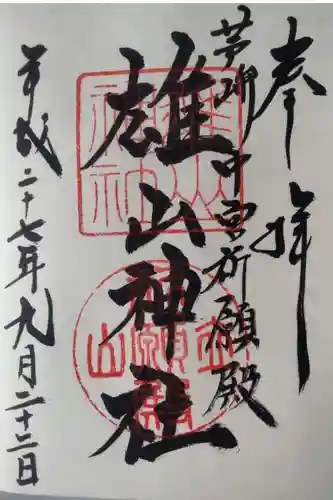 奉拝
芦峅中宮祈願殿
雄山神社
平成二十七年九月二十二日
雄山神社